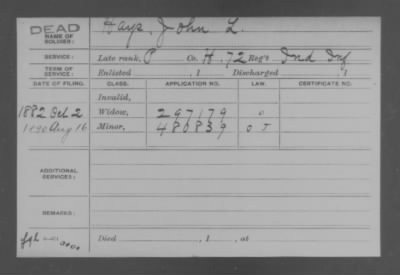 DEAD
NAME OF SOLDIER: Hays, John L.
SERVICE: Late rank, P Co. H. 72 Reg't Ind Inf
TERM OF SERVICE: Enlisted , 1 Discharged , 1
DATE OF FILING. CLASS. APPLICATION NO. LAW. CERTIFICATE NO.
Invalid,
1882 Oct 2 Widow, 297179 o
1890 Aug 16 Minor, 480839 O T
ADDITIONAL SERVICES:
REMARKS:
Died , 1 , at